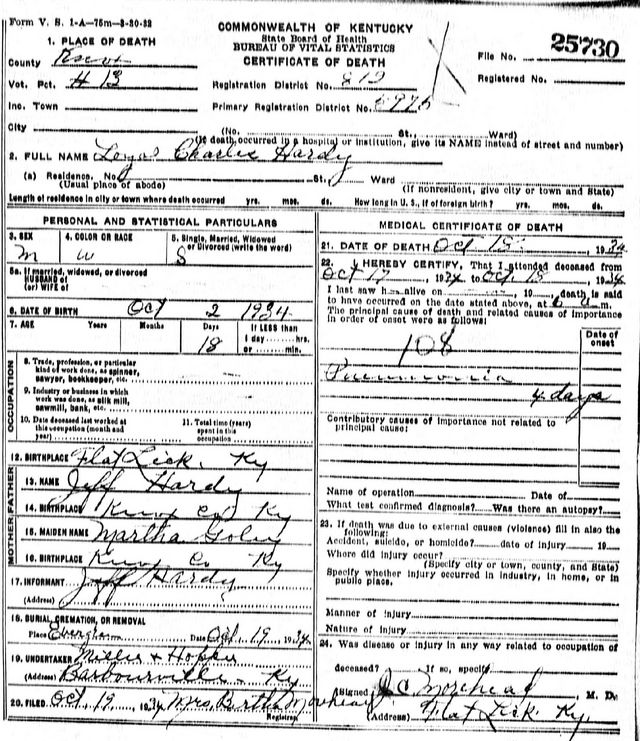 Form V. S. 1-A—75m—8-30-32
COMMONWEALTH OF KENTUCKY
State Board of Health
BUREAU OF VITAL STATISTICS
CERTIFICATE OF DEATH
25730
File No.
Registered No.
1. PLACE OF DEATH
County Knox
Vot. Pct. # 13
Inc. Town
City
Registration District No. 812
Primary Registration District No.
(No. St., Ward)
(If death occurred in a hospital or institution, give its NAME instead of street and number)
2. FULL NAME Charlie Hardy
(a) Residence. No. St., Ward
(Usual place of abode) (If nonresident, give city or town and State)
Length of residence in city or town where death occurred yrs. mos. ds. How long in U. S., if of foreign birth? yrs. mos. ds.
PERSONAL AND STATISTICAL PARTICULARS
3. SEX 4. COLOR OR RACE 5. Single, Married, Widowed or Divorced (write the word)
M W S
5a. If married, widowed, or divorced
HUSBAND of
(or) WIFE of
6. DATE OF BIRTH Oct 2 1934
7. AGE Years Months Days If LESS than
18 1 day hrs.
or min.
OCCUPATION
8. Trade, profession, or particular
kind of work done, as spinner,
sawyer, bookkeeper, etc.
9. Industry or business in which
work was done, as silk mill,
sawmill, bank, etc.
10. Date deceased last worked at
this occupation (month and
year)
11. Total time (years)
spent in this
occupation
12. BIRTHPLACE Flat Lick, Ky
FATHER
13. NAME Jeff Hardy
14. BIRTHPLACE Knox Co Ky
MOTHER
15. MAIDEN NAME Martha
16. BIRTHPLACE Knox Co Ky
17. INFORMANT Jeff Hardy
(Address)
18. BURIAL, CREMATION, OR REMOVAL
Place Date Oct 19 1934
19. UNDERTAKER Miller + Hopper
(Address) Barbourville - Ky
20. FILED Oct 19, 1934 Mrs. Bertha Morehead
Registrar.
MEDICAL CERTIFICATE OF DEATH
21. DATE OF DEATH Oct 18 1934
22. I HEREBY CERTIFY, That I attended deceased from
Oct 17 1934 to Oct 18 1934
I last saw h alive on , 19 , death is said
to have occurred on the date stated above, at 6 m.
The principal cause of death and related causes of importance
in order of onset were as follows:
Date of
onset
108
Pneumonia
4 days
Contributory causes of importance not related to
principal cause:
Name of operation Date of
What test confirmed diagnosis? Was there an autopsy?
23. If death was due to external causes (violence) fill in also the
following:
Accident, suicide, or homicide? date of injury 19
Where did injury occur?
(Specify city or town, county, and State)
Specify whether injury occurred in industry, in home, or in
public place.
Manner of injury
Nature of injury
24. Was disease or injury in any way related to occupation of
deceased? If so, specify
(Signed) J C Morehead, M. D.
(Address) Flat Lick Ky.